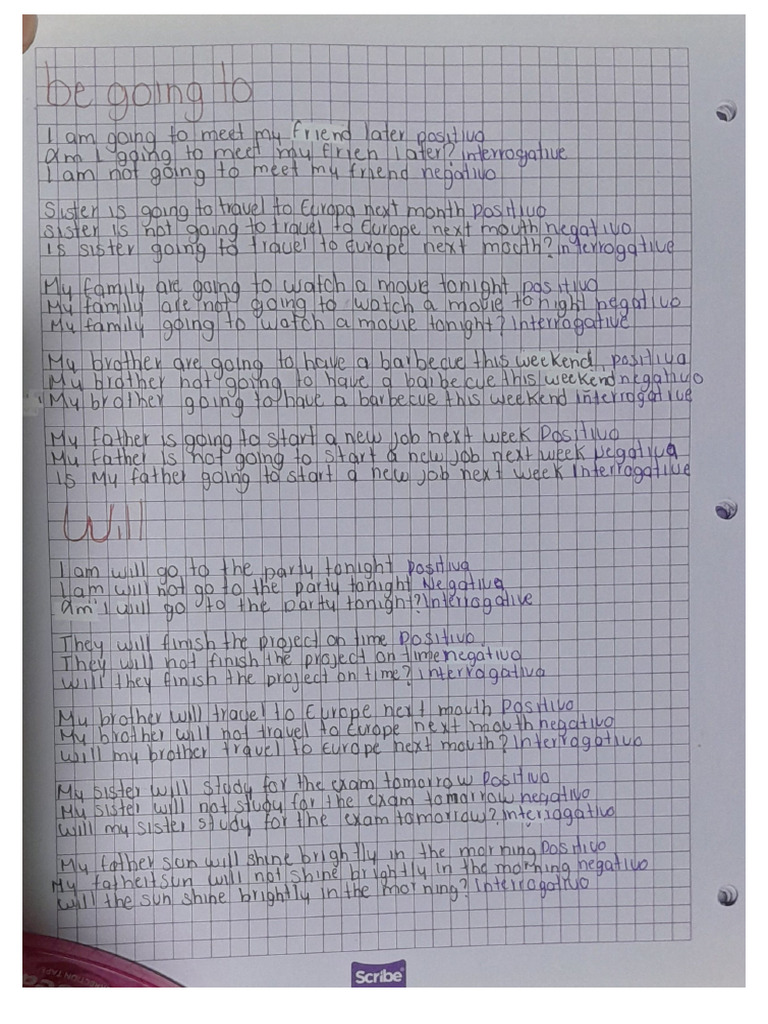 be going to
I am going to meet my friend later positivo
am I going to meet my frien later? interrogative
I am not going to meet my friend negativo
Sister is going to travel to Europa next month Positivo
sister is not going to travel to Europe next mouth negativo
is sister going to travel to Europe next mouth? interrogative
My family are going to watch a movie tonight positivo
My family are not going to watch a movie tonight negativo
My family going to watch a movie tonight? Interrogative
My brother are going to have a barbecue this weekend. positiva
My brother not going to have a barbecue this weekend negativo
My brother going to have a barbecue this weekend interrogative
My father is going to start a new job next week Positivo
My father is not going to start a new job next week negativa
is My father going to start a new job next week Interrogative
Will
I am will go to the party tonight positiva
I am will not go to the party tonight Negativa
am I will go to the party tonight? Interrogative
They will finish the project on time Positivo
They will not finish the project on time negativo
will they finish the project on time? interrogativa
My brother will travel to Europe next mouth Positivo
My brother will not travel to Europe next mouth negativo
will my brother travel to Europe next mouth? Interrogativo
My sister will study for the exam tomorrow Positivo
My sister will not study for the exam tomorrow negativo
will my sister study for the exam tomorrow? Interrogativo
My father sun will shine brightly in the morning positivo
My father sun will not shine brightly in the morning negativo
will the sun shine brightly in the morning? interrogativo
Scribe